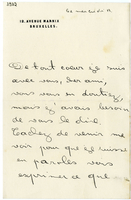 10, AVENUE MARNIX
BRUXELLES.
De tout cœur je suis
avec vous, cher ami,
vous vous en doutez,
mais j'avais besoin
de vous le dire.
Tachez de venir me
voir pour que je puisse
en paroles vous
exprimer ce que